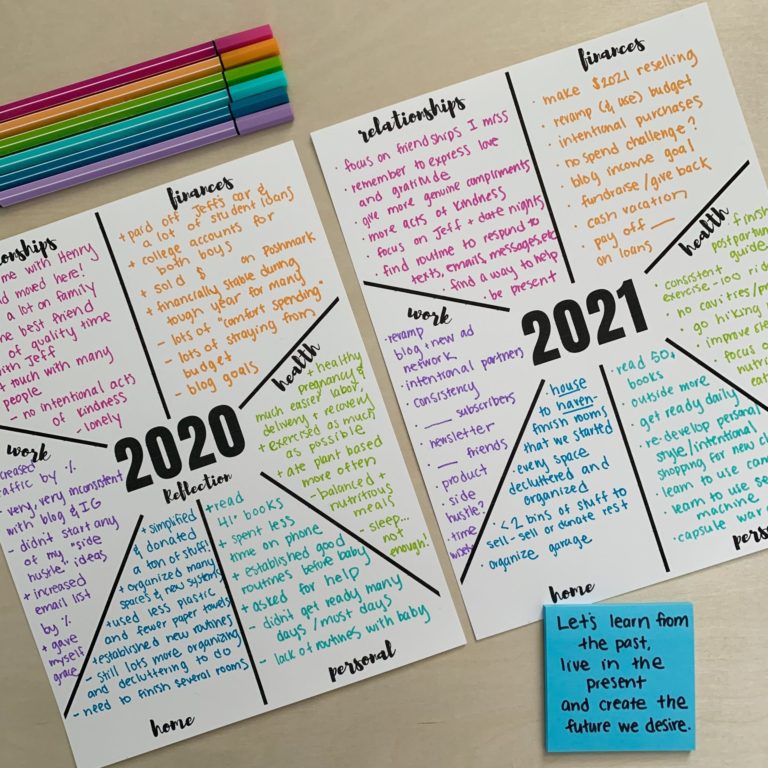 finances
+ paid off Jeff's car &
a lot of student loans
+ college accounts for
both boys
+ sold $ on Poshmark
+ financially stable during
tough year for many
- lots of "comfort spending"
- lots of straying from
budget
- blog goals
me with Henry
d moved here!
a lot on family
ne best friend
of quality time
with Jeff
touch with many
people
- no intentional acts
of kindness
- lonely
health
+ healthy
pregnancy &
much easier labor/
delivery + recovery
+ exercised as much
as possible
+ ate plant based
more often
- balanced +
nutritious
meals
- sleep...
not
enough!
2020
Reflection
work
creased
affic by %
- very, very inconsistent
with blog & IG
- didn't start any
of my "side
hustle" ideas
+ increased
email list
by %
+ gave
myself
grace
+ simplified
& donated
a ton of stuff!
+ organized many
spaces & new systems
+ used less plastic
and fewer paper towels
+ established new routines
- still lots more organizing
and decluttering to do
- need to finish several rooms
home
+ read
41+ books
+ spent less
time on phone
+ established good
routines before baby
+ asked for help
- didn't get ready many
days/most days
- lack of routines with baby
personal
relationships
· focus on friendships I miss
· remember to express love
and gratitude
· give more genuine compliments
· more acts of kindness
· focus on Jeff + date nights
· find routine to respond to
texts, emails, messages, etc
· find a way to help
· be present
finances
· make $2021 reselling
· revamp (& use) budget
· intentional purchases
· no spend challenge?
· blog income goal
· fundraise/give back
· cash vacation
· pay off ___
on loans
health
· finish
postpartum
guide
· consistent
exercise-100 rid
· no cavities/p
· go hiking
· improve sle
· focus o
nutri
ea
2021
work
· revamp
blog + new ad
network
· intentional partners
· consistency
· ___ subscribers
· newsletter
· ___ friends
· product
· side
hustle?
· time
· house
to haven-
finish rooms
that we started
· every space
decluttered and
organized
· <2 bins of stuff to
sell-sell or donate rest
· organize garage
home
· read 50+
books
· outside more
· get ready daily
· re-develop personal
style/intentional
shopping for new cl
· learn to use cam
· learn to use se
machine
· capsule war
perso
Let's learn from
the past,
live in the
present
and create the
future we desire.